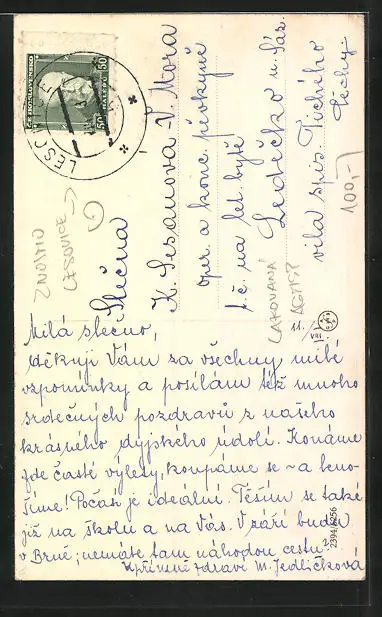 ČESKOSLOVENSKO
50 HALÉŘŮ 50
LESO
ZNOJMO
LESOVICE →
Slečna
K. Lesanova-V. Mora
oper. a konc. pěvkyně
t. č. na let. bytě
Ledečko u. Sáz.
vila spis. Tichého
Čechy
100,-
11. VIII.
Milá slečno,
děkuji Vám za všechny milé
vzpomínky a posílám též mnoho
srdečných pozdravů z našeho
krásného dyjského údolí. Konáme
zde časté výlety, koupáme se - a leno-
šíme! Počasí je ideální. Těším se také
již na školu a na Vás. V září budu
v Brně; nemáte tam náhodou cestu?
Upřímně zdraví M. Jedličková
2394/6256